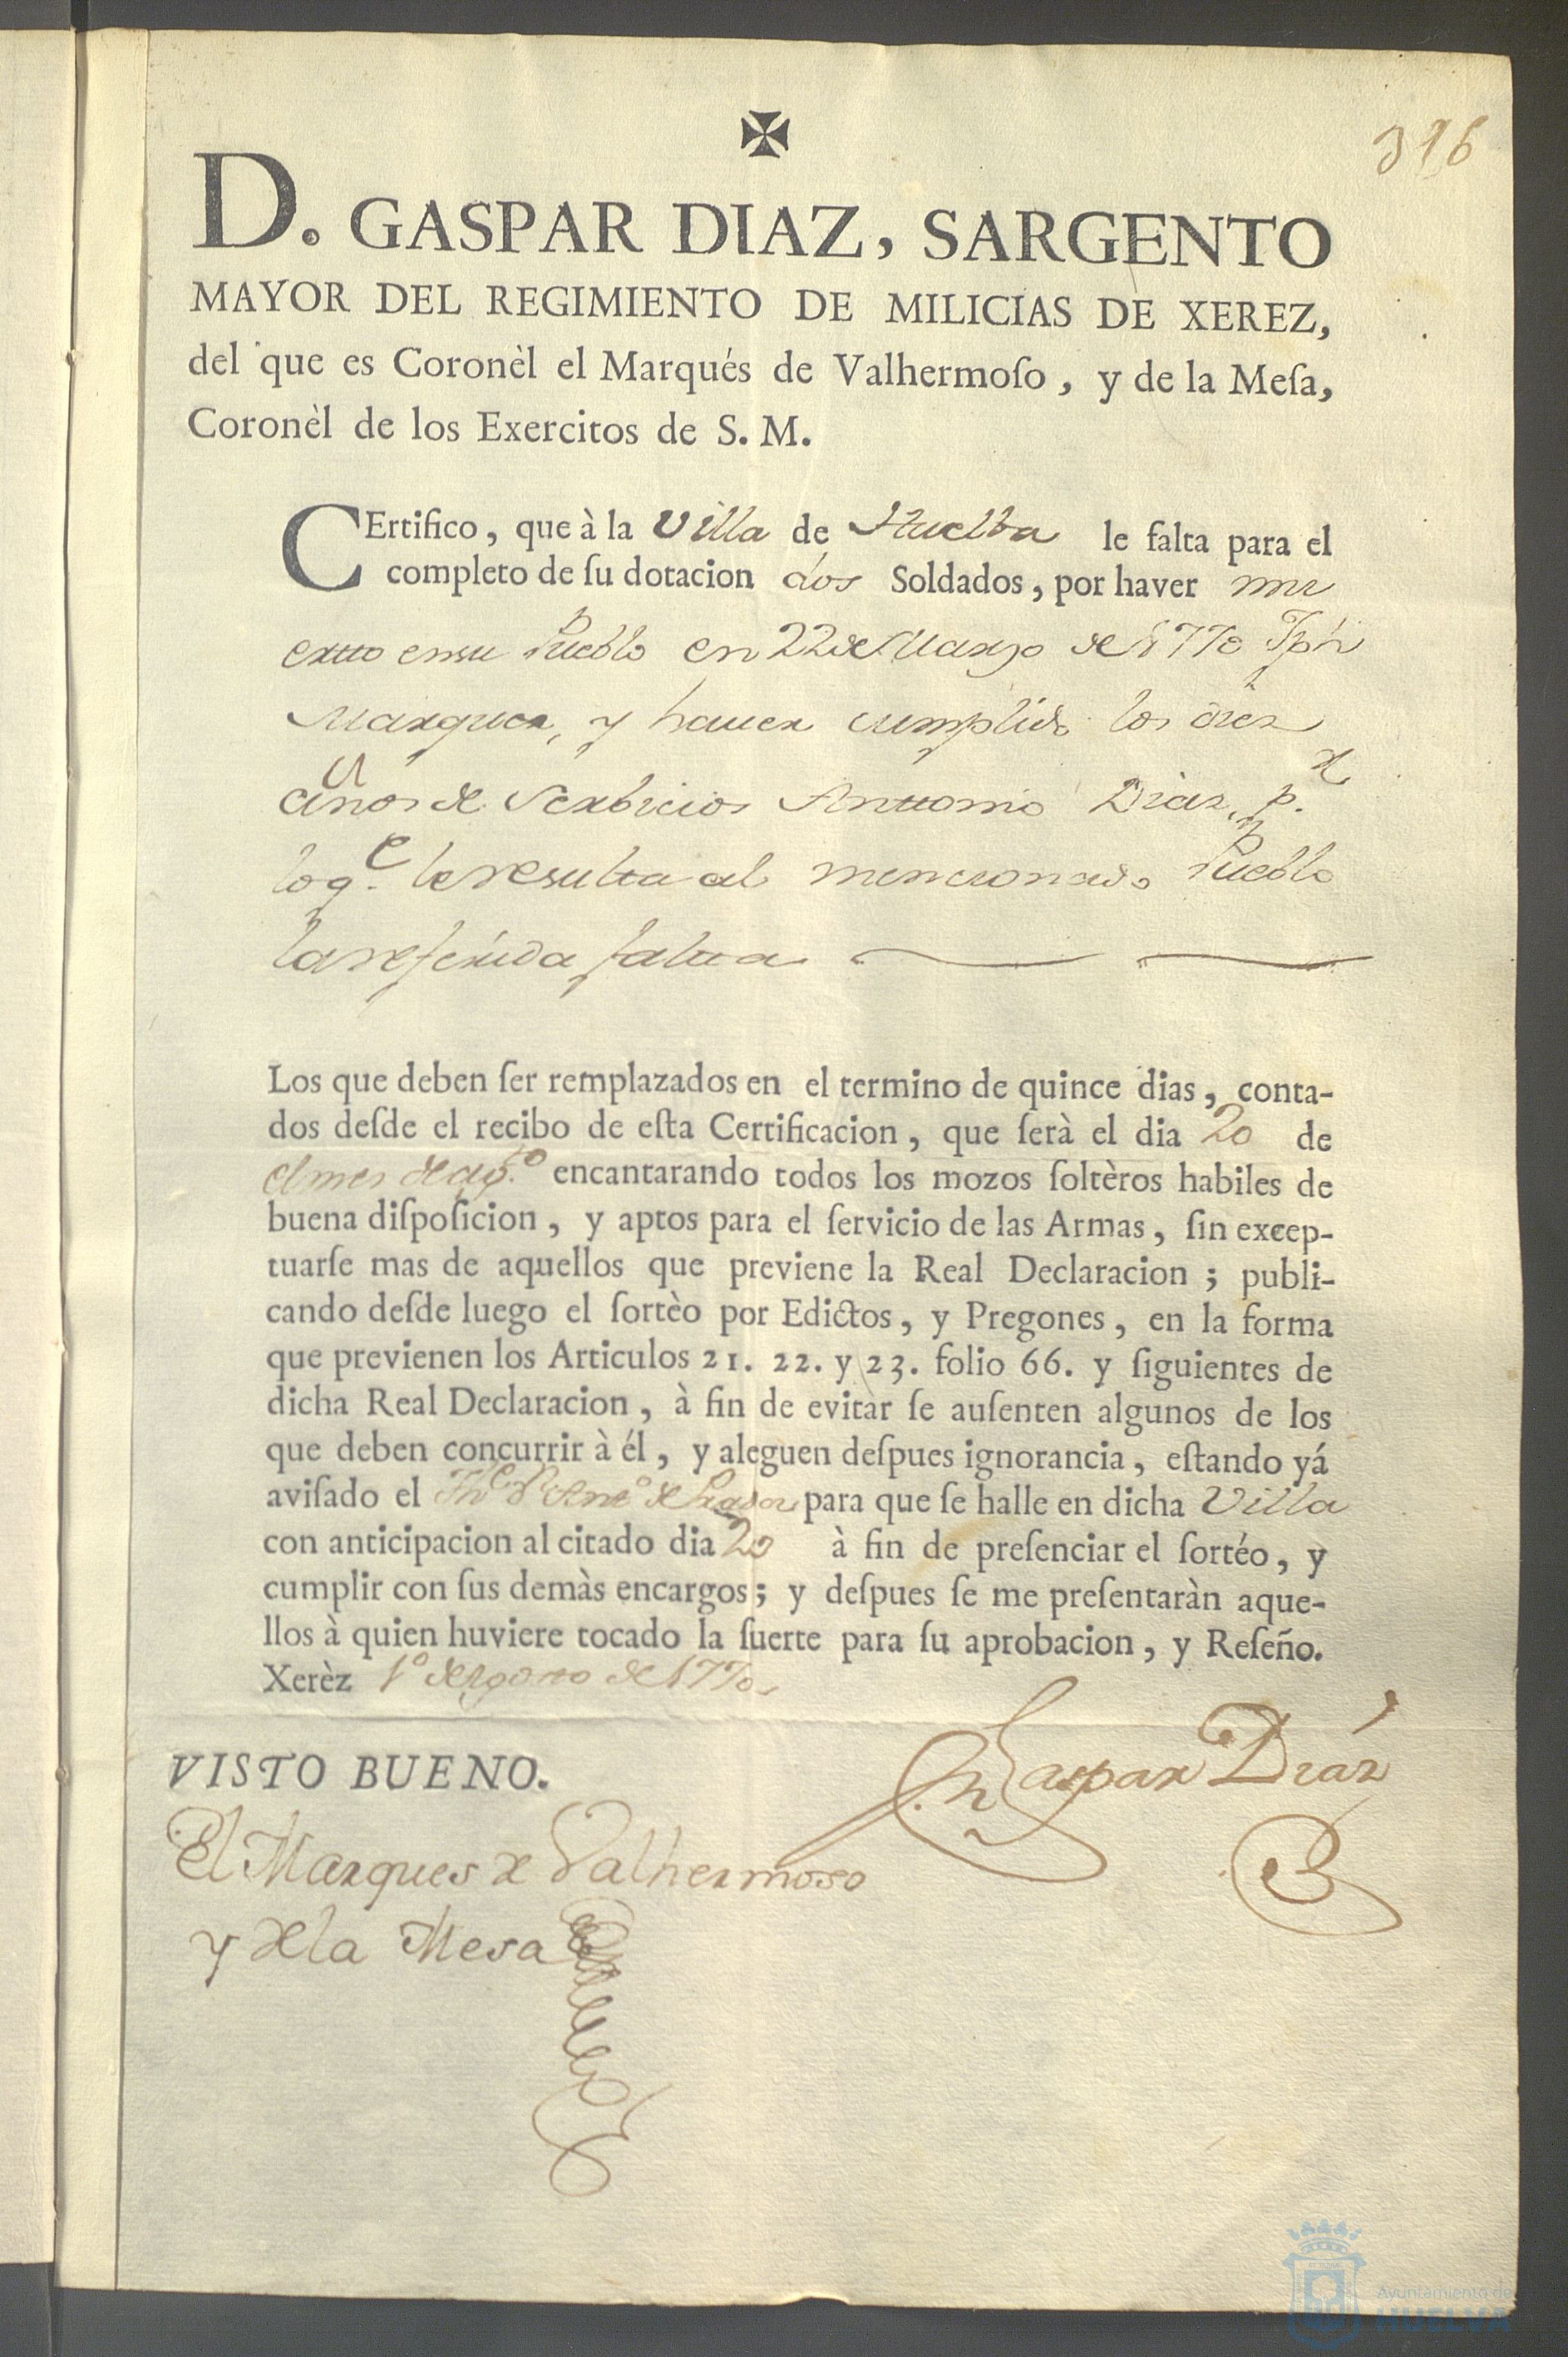 396
D. GASPAR DIAZ, SARGENTO
MAYOR DEL REGIMIENTO DE MILICIAS DE XEREZ,
del que es Coronèl el Marqués de Valhermoſo, y de la Meſa,
Coronèl de los Exercitos de S. M.
CErtifico, que à la Villa de Huelba le falta para el
completo de ſu dotacion dos Soldados, por haver mu
extto ensu Pueblo en 22 de Marzo de 1770 Jph
Marquez, y hauer cumplido los diez
años de Serbicios Anttonio Diaz, p.r
loq.e le resulta al mencionado Pueblo
la referida faltta
Los que deben ſer remplazados en el termino de quince dias, conta-
dos deſde el recibo de eſta Certificacion, que ſerà el dia 20 de
el mes de ag.to encantarando todos los mozos ſoltèros habiles de
buena diſpoſicion, y aptos para el ſervicio de las Armas, ſin excep-
tuarſe mas de aquellos que previene la Real Declaracion; publi-
cando deſde luego el ſortèo por Edictos, y Pregones, en la forma
que previenen los Articulos 21. 22. y 23. folio 66. y ſiguientes de
dicha Real Declaracion, à fin de evitàr ſe auſenten algunos de los
que deben concurrir à él, y aleguen deſpues ignorancia, eſtando yá
aviſado el para que ſe halle en dicha Villa
con anticipacion al citado dia 20 à fin de preſenciar el ſortéo, y
cumplir con ſus demàs encargos; y deſpues ſe me preſentaràn aque-
llos à quien huviere tocado la ſuerte para ſu aprobacion, y Reſeño.
Xerèz 1º de Agosto de 1770
Gaspar Diáz
VISTO BUENO.
El Marques de Valhermoso
y de la Mesa
Ayuntamiento de
HUELVA